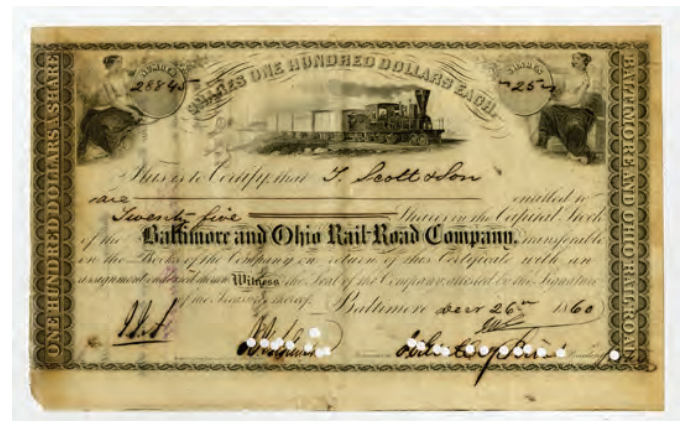 NUMBER
28845
SHARES ONE HUNDRED DOLLARS EACH.
25
ONE HUNDRED DOLLARS A SHARE
BALTIMORE AND OHIO RAILROAD
This is to Certify, that T. Scott & Son
are entitled to
Twenty five Shares in the Capital Stock
of the Baltimore and Ohio Rail-Road Company, transferable
on the Books of the Company on return of this Certificate with an
assignment endorsed thereon Witness the Seal of the Company attested by the Signature
of the Treasurer thereof. Baltimore Decr 26th 1860